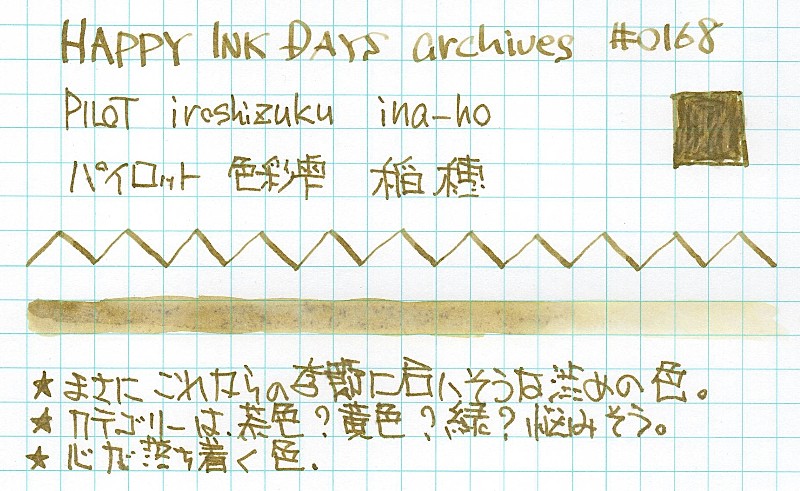 HAPPY INK DAYS archives #0168
PILOT iroshizuku ina-ho
パイロット 色彩雫 稲穂
★ まさに これからの季節に合いそうな渋めの色。
★ カテゴリーは、茶色？黄色？緑？悩みそう。
★ 心が落ち着く色.